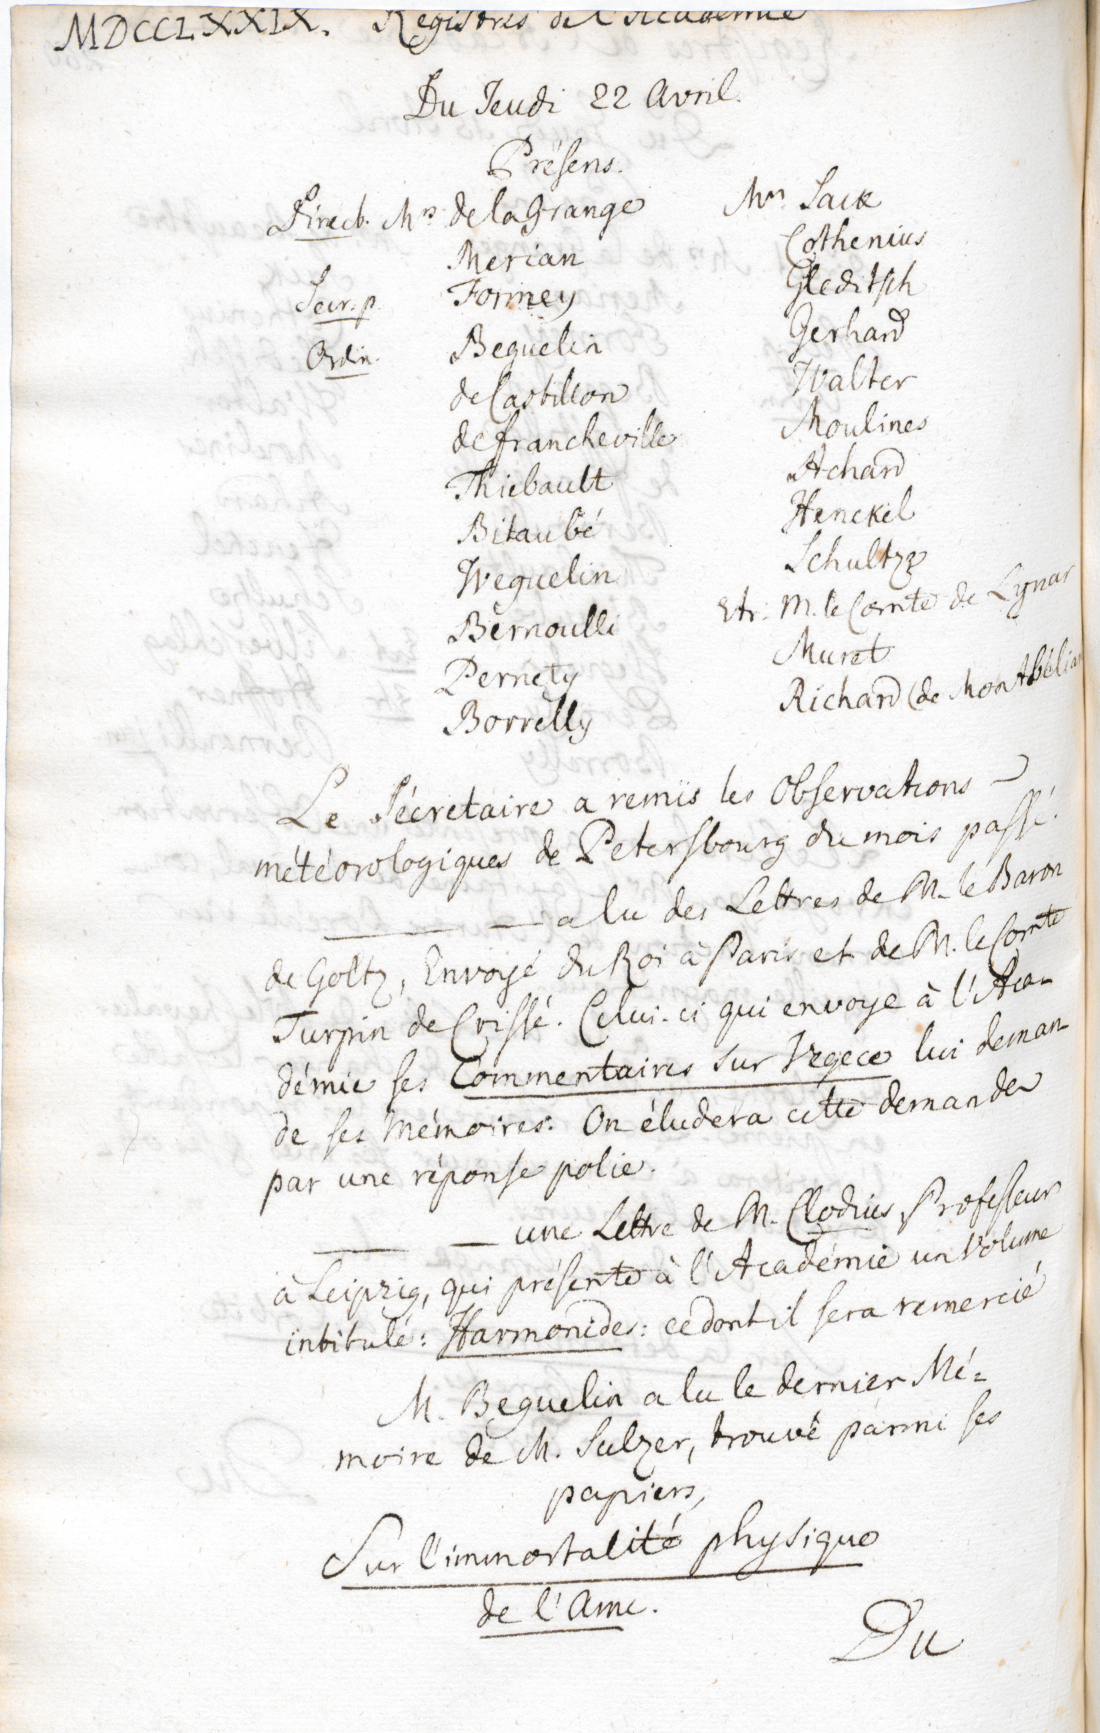 MDCCLXXIX. Registres de l'Academie
Du Jeudi 22 Avril.
Présens.
Direct. Mrs de la Grange
Merian
Secr. p. Formey
Ordin. Beguelin
de Castillon
de Francheville
Thiebault
Bitaubé
Weguelin
Bernoulli
Pernety
Borrelly
Mrs Sack
Cothenius
Gleditsch
Gerhard
Walter
Moulines
Achard
Henckel
Schultze
Etr. M. le Comte de Lynar
Muret
Richard (de Montbéliar
Le Sécretaire a remis les Observations
météorologiques de Petersbourg du mois passé.
——— — a lu des Lettres de M. le Baron
de Goltz, Envoyé du Roi à Paris et de M. le Comte
Turpin de Crissé. Celui-ci qui envoye à l'Aca-
démie ses Commentaires sur Vegece lui deman-
de ses Mémoires. On éludera cette demande
par une réponse polie.
——— — une Lettre de M. Clodius, Professeur
à Leipzig, qui présente à l'Académie un Volume
intitulé: Harmonides: ce dont il sera remercié
M. Beguelin a lu le dernier Mé=
moire de M. Sulzer, trouvé parmi ses
papiers,
Sur l'immortalité physique
de l'Ame.
Du